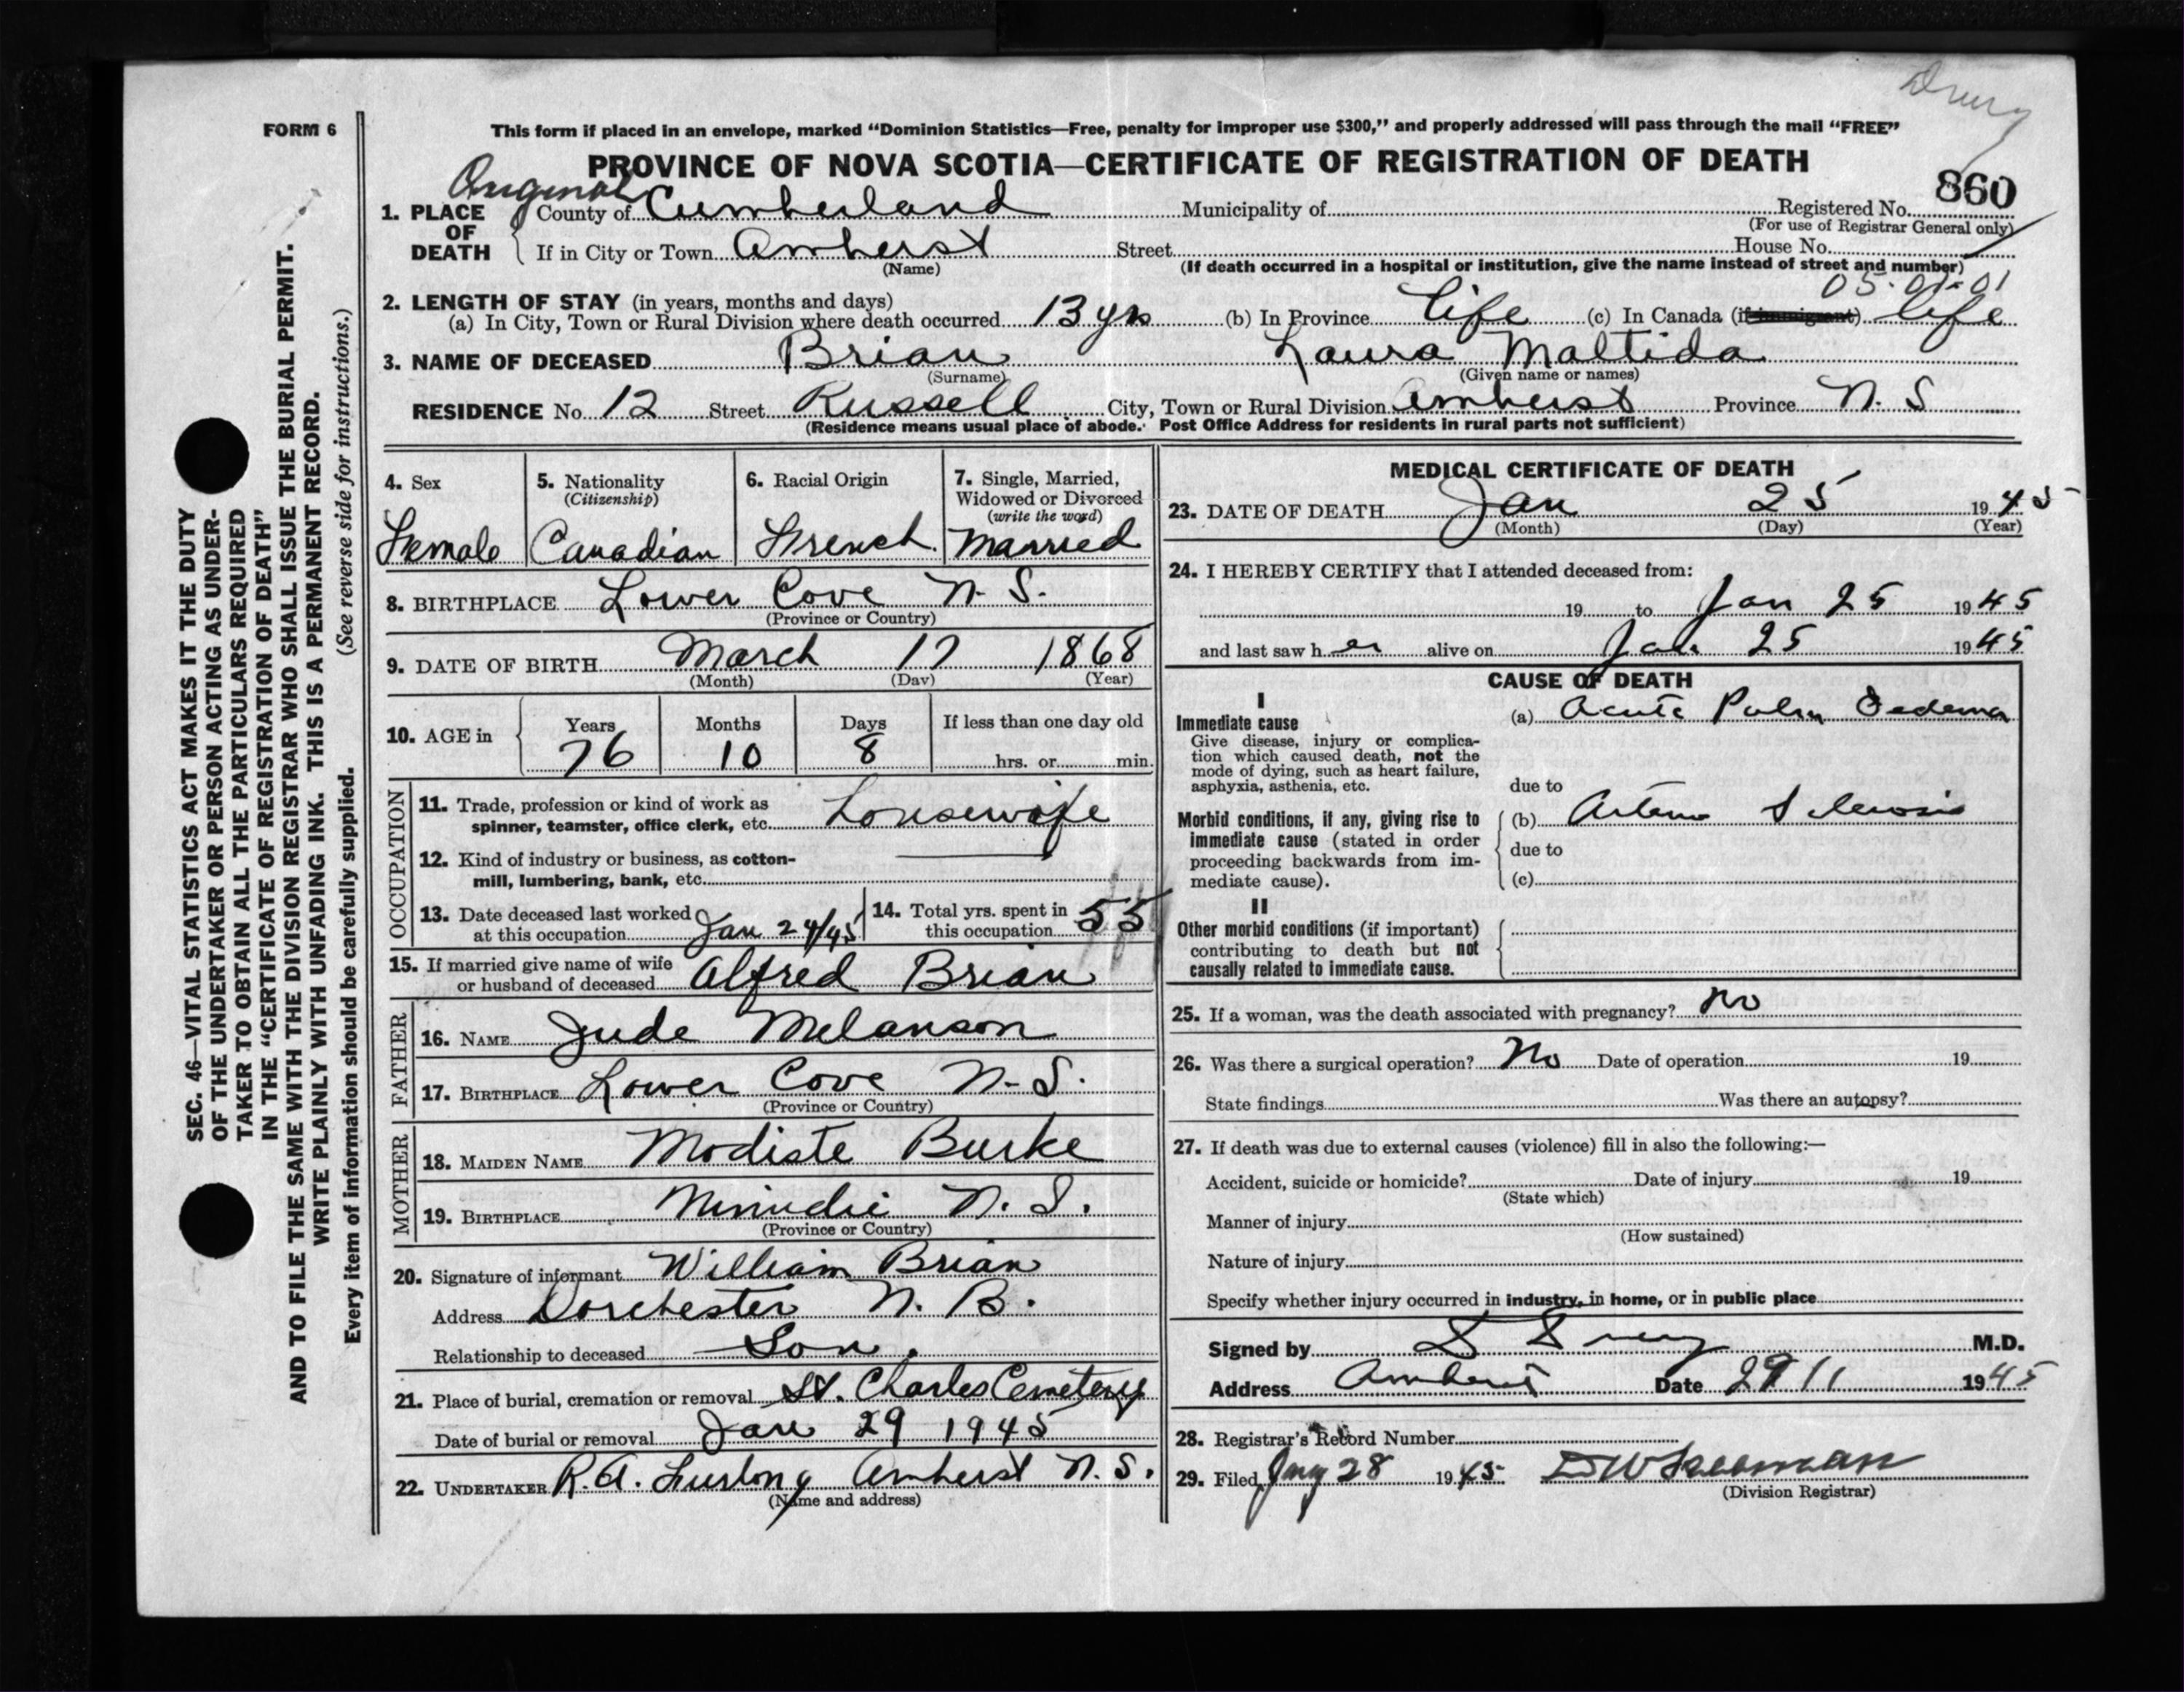 Drury
FORM 6
This form if placed in an envelope, marked “Dominion Statistics—Free, penalty for improper use $300,” and properly addressed will pass through the mail “FREE”
PROVINCE OF NOVA SCOTIA—CERTIFICATE OF REGISTRATION OF DEATH
Original
860
1. PLACE OF DEATH
County of Cumberland Municipality of Registered No.
(For use of Registrar General only)
If in City or Town Amherst Street House No.
(Name) (If death occurred in a hospital or institution, give the name instead of street and number)
05-01-01
2. LENGTH OF STAY (in years, months and days)
(a) In City, Town or Rural Division where death occurred 13 yrs (b) In Province Life (c) In Canada (if immigrant) life
3. NAME OF DECEASED Brian Laura Maltida
(Surname) (Given name or names)
RESIDENCE No. 12 Street Russell City, Town or Rural Division Amherst Province N. S
(Residence means usual place of abode. Post Office Address for residents in rural parts not sufficient)
4. Sex
Female
5. Nationality
(Citizenship)
Canadian
6. Racial Origin
French
7. Single, Married,
Widowed or Divorced
(write the word)
Married
8. BIRTHPLACE Lower Cove N. S.
(Province or Country)
9. DATE OF BIRTH March 17 1868
(Month) (Day) (Year)
10. AGE in
Years Months Days If less than one day old
76 10 8 hrs. or min.
OCCUPATION
11. Trade, profession or kind of work as
spinner, teamster, office clerk, etc. Housewife
12. Kind of industry or business, as cotton-
mill, lumbering, bank, etc.
13. Date deceased last worked
at this occupation Jan 24/45
14. Total yrs. spent in
this occupation 55
15. If married give name of wife
or husband of deceased Alfred Brian
FATHER
16. NAME Jude Melanson
17. BIRTHPLACE Lower Cove N-S.
(Province or Country)
MOTHER
18. MAIDEN NAME Modiste Burke
19. BIRTHPLACE Minudie N. S.
(Province or Country)
20. Signature of informant William Brian
Address Dorchester N. B.
Relationship to deceased Son.
21. Place of burial, cremation or removal St. Charles Cemetery
Date of burial or removal Jan 29 1945
22. UNDERTAKER R. A. Furlong Amherst N. S.
(Name and address)
MEDICAL CERTIFICATE OF DEATH
23. DATE OF DEATH Jan 25 1945
(Month) (Day) (Year)
24. I HEREBY CERTIFY that I attended deceased from:
19 to Jan 25 1945
and last saw her alive on Jan 25 1945
CAUSE OF DEATH
I
Immediate cause
(a) Acute Pulm Oedema
Give disease, injury or complica-
tion which caused death, not the
mode of dying, such as heart failure,
asphyxia, asthenia, etc.
due to
Morbid conditions, if any, giving rise to
immediate cause (stated in order
proceeding backwards from im-
mediate cause).
(b) Arterio Sclerosis
due to
(c)
II
Other morbid conditions (if important)
contributing to death but not
causally related to immediate cause.
25. If a woman, was the death associated with pregnancy? No
26. Was there a surgical operation? No Date of operation 19
State findings Was there an autopsy?
27. If death was due to external causes (violence) fill in also the following:—
Accident, suicide or homicide? Date of injury 19
(State which)
Manner of injury
(How sustained)
Nature of injury
Specify whether injury occurred in industry, in home, or in public place
Signed by Drury M.D.
Address Amherst Date 29 11 1945
28. Registrar's Record Number
29. Filed Jany 28 1945 D W Freeman
(Division Registrar)
SEC. 46—VITAL STATISTICS ACT MAKES IT THE DUTY
OF THE UNDERTAKER OR PERSON ACTING AS UNDER-
TAKER TO OBTAIN ALL THE PARTICULARS REQUIRED
IN THE “CERTIFICATE OF REGISTRATION OF DEATH”
AND TO FILE THE SAME WITH THE DIVISION REGISTRAR WHO SHALL ISSUE THE BURIAL PERMIT.
WRITE PLAINLY WITH UNFADING INK. THIS IS A PERMANENT RECORD.
Every item of information should be carefully supplied. (See reverse side for instructions.)